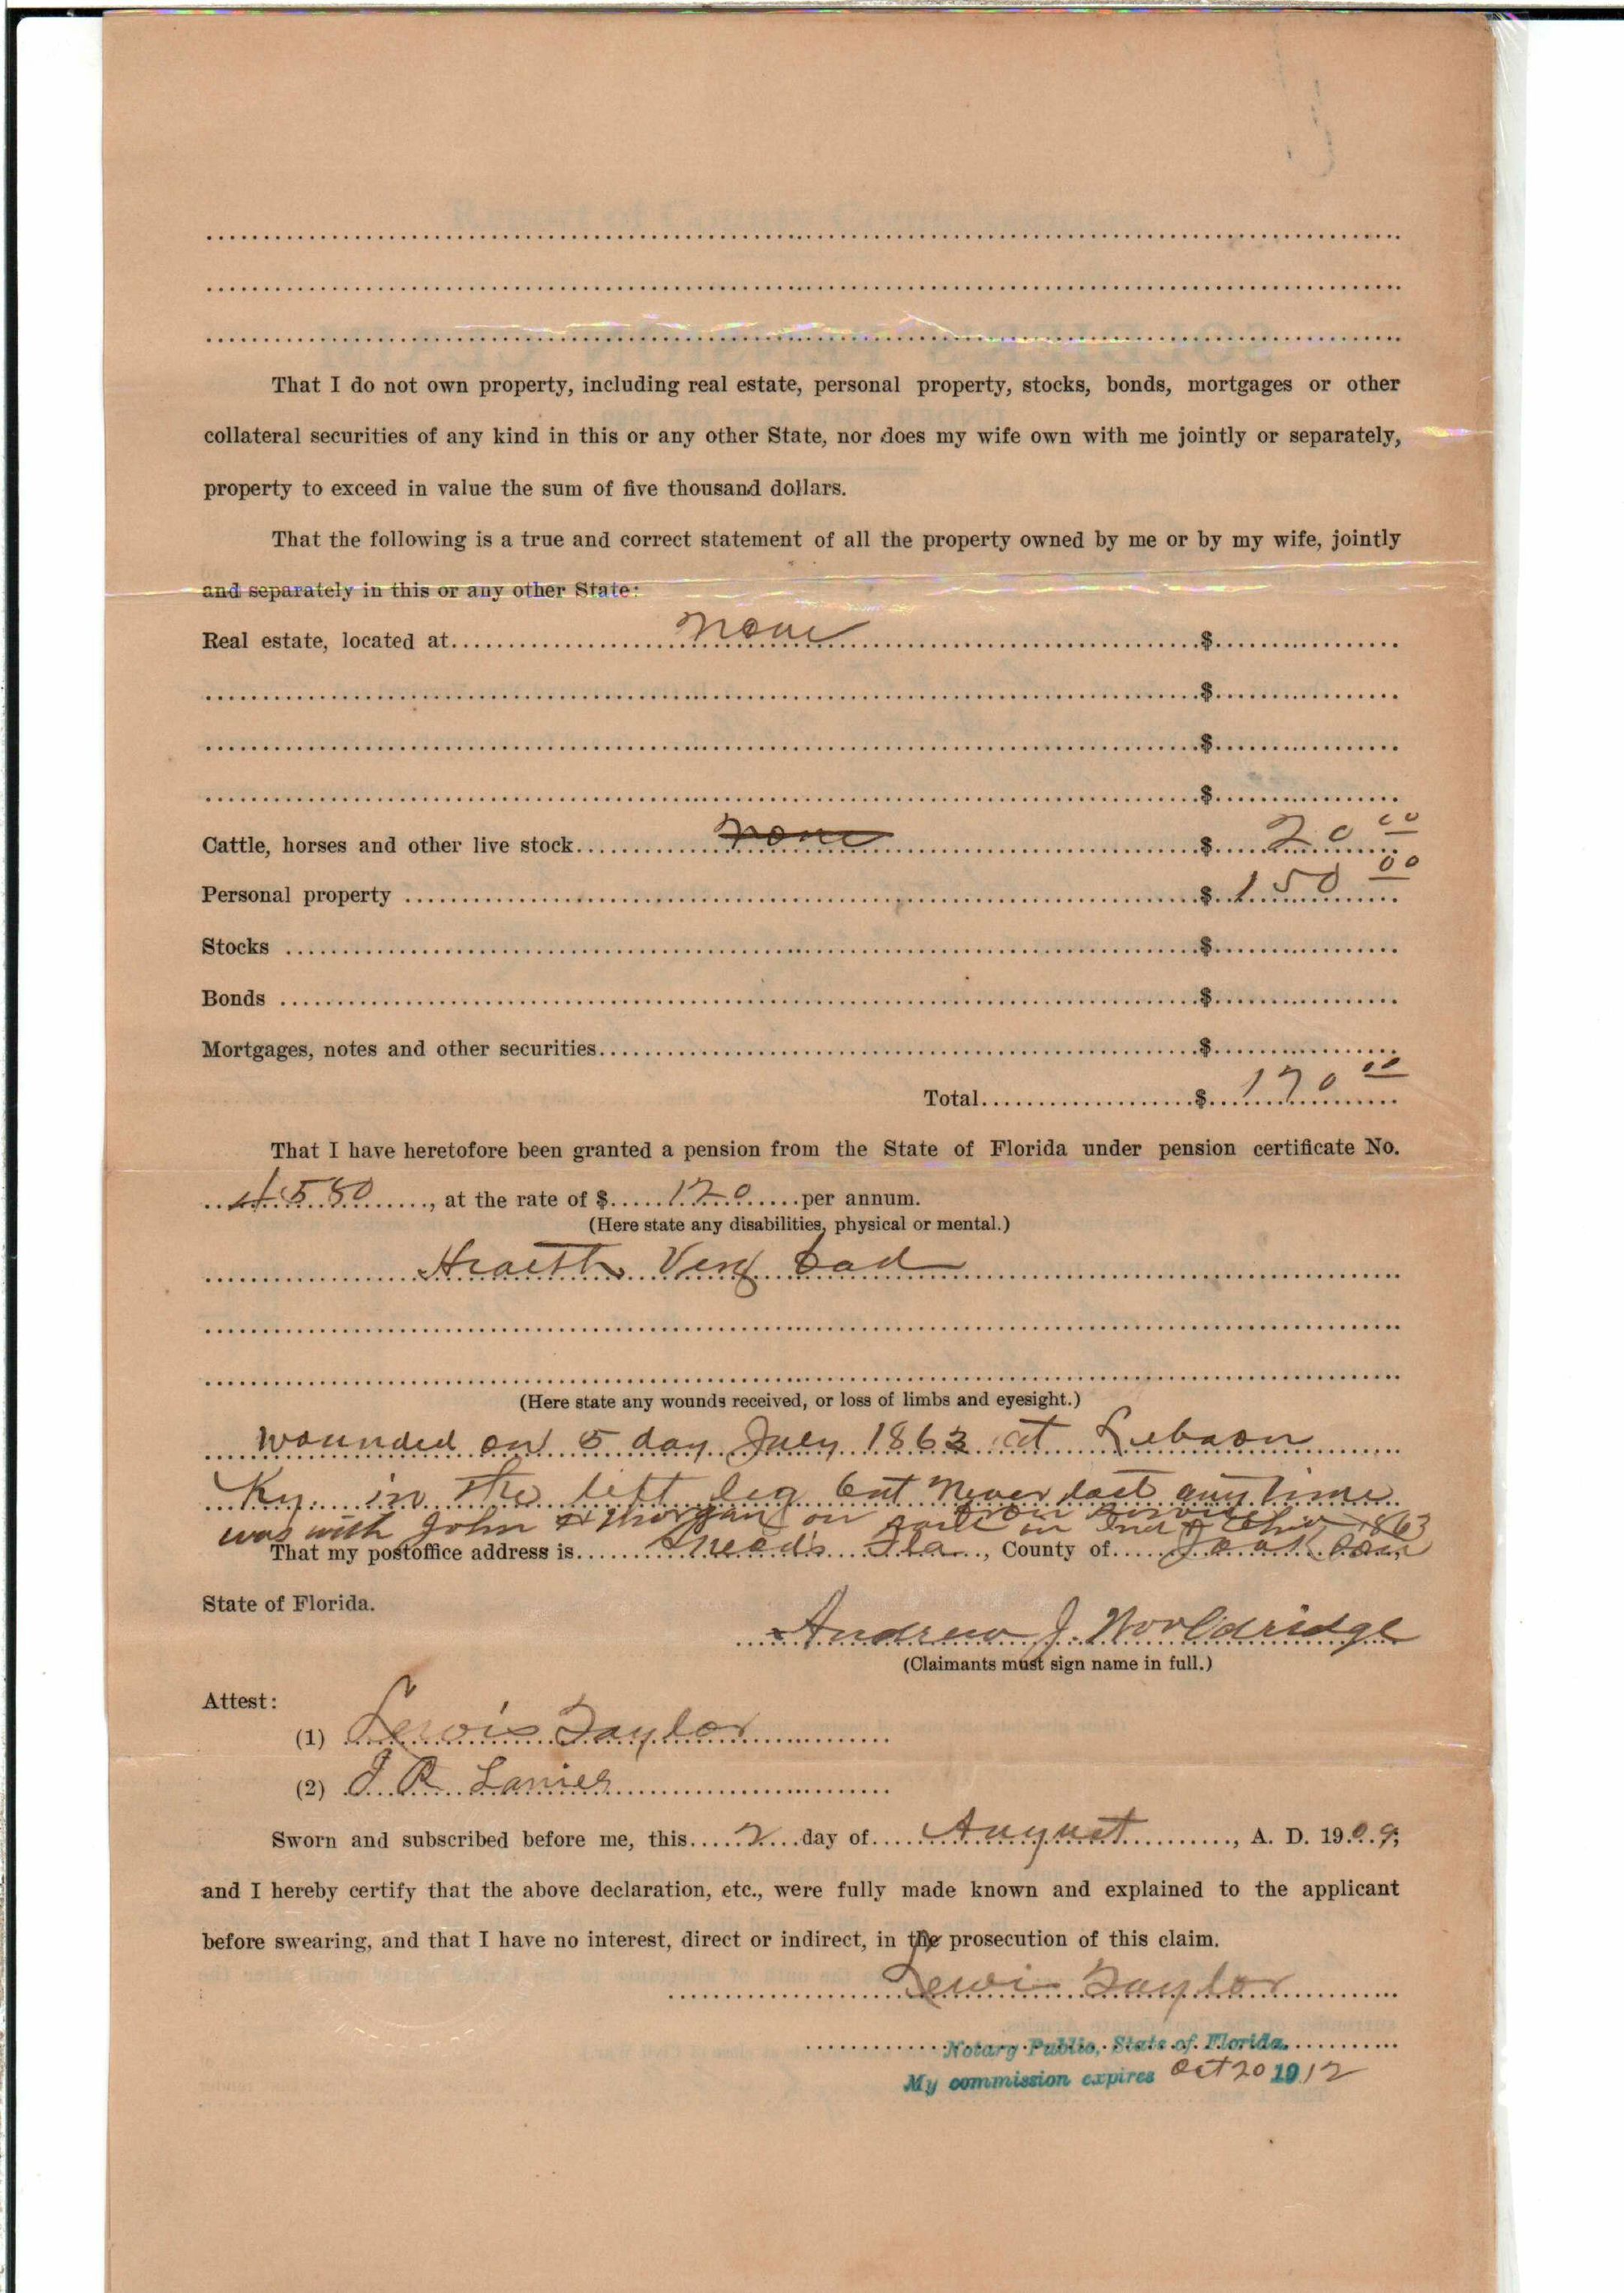 That I do not own property, including real estate, personal property, stocks, bonds, mortgages or other
collateral securities of any kind in this or any other State, nor does my wife own with me jointly or separately,
property to exceed in value the sum of five thousand dollars.
That the following is a true and correct statement of all the property owned by me or by my wife, jointly
and separately in this or any other State:
Real estate, located at none $
$
$
$
Cattle, horses and other live stock none $ 20 00
Personal property $ 150 00
Stocks $
Bonds $
Mortgages, notes and other securities $
Total $ 170 00
That I have heretofore been granted a pension from the State of Florida under pension certificate No.
4580, at the rate of $ 120 per annum.
(Here state any disabilities, physical or mental.)
Health Very bad
(Here state any wounds received, or loss of limbs and eyesight.)
wounded on 5 day July 1863 at Lebaon
Ky. in the left leg but Never lost any time
from service
was with John H Morgan on raid in Ind & Ohio 1863
That my postoffice address is Sneads Fla, County of Jackson
State of Florida.
Andrew J. Wooldridge
(Claimants must sign name in full.)
Attest:
(1) Lewis Taylor
(2) J. R. Lanier
Sworn and subscribed before me, this 2 day of August, A. D. 1909;
and I hereby certify that the above declaration, etc., were fully made known and explained to the applicant
before swearing, and that I have no interest, direct or indirect, in the prosecution of this claim.
Lewis Taylor
Notary Public, State of Florida.
My commission expires Oct 20 1912